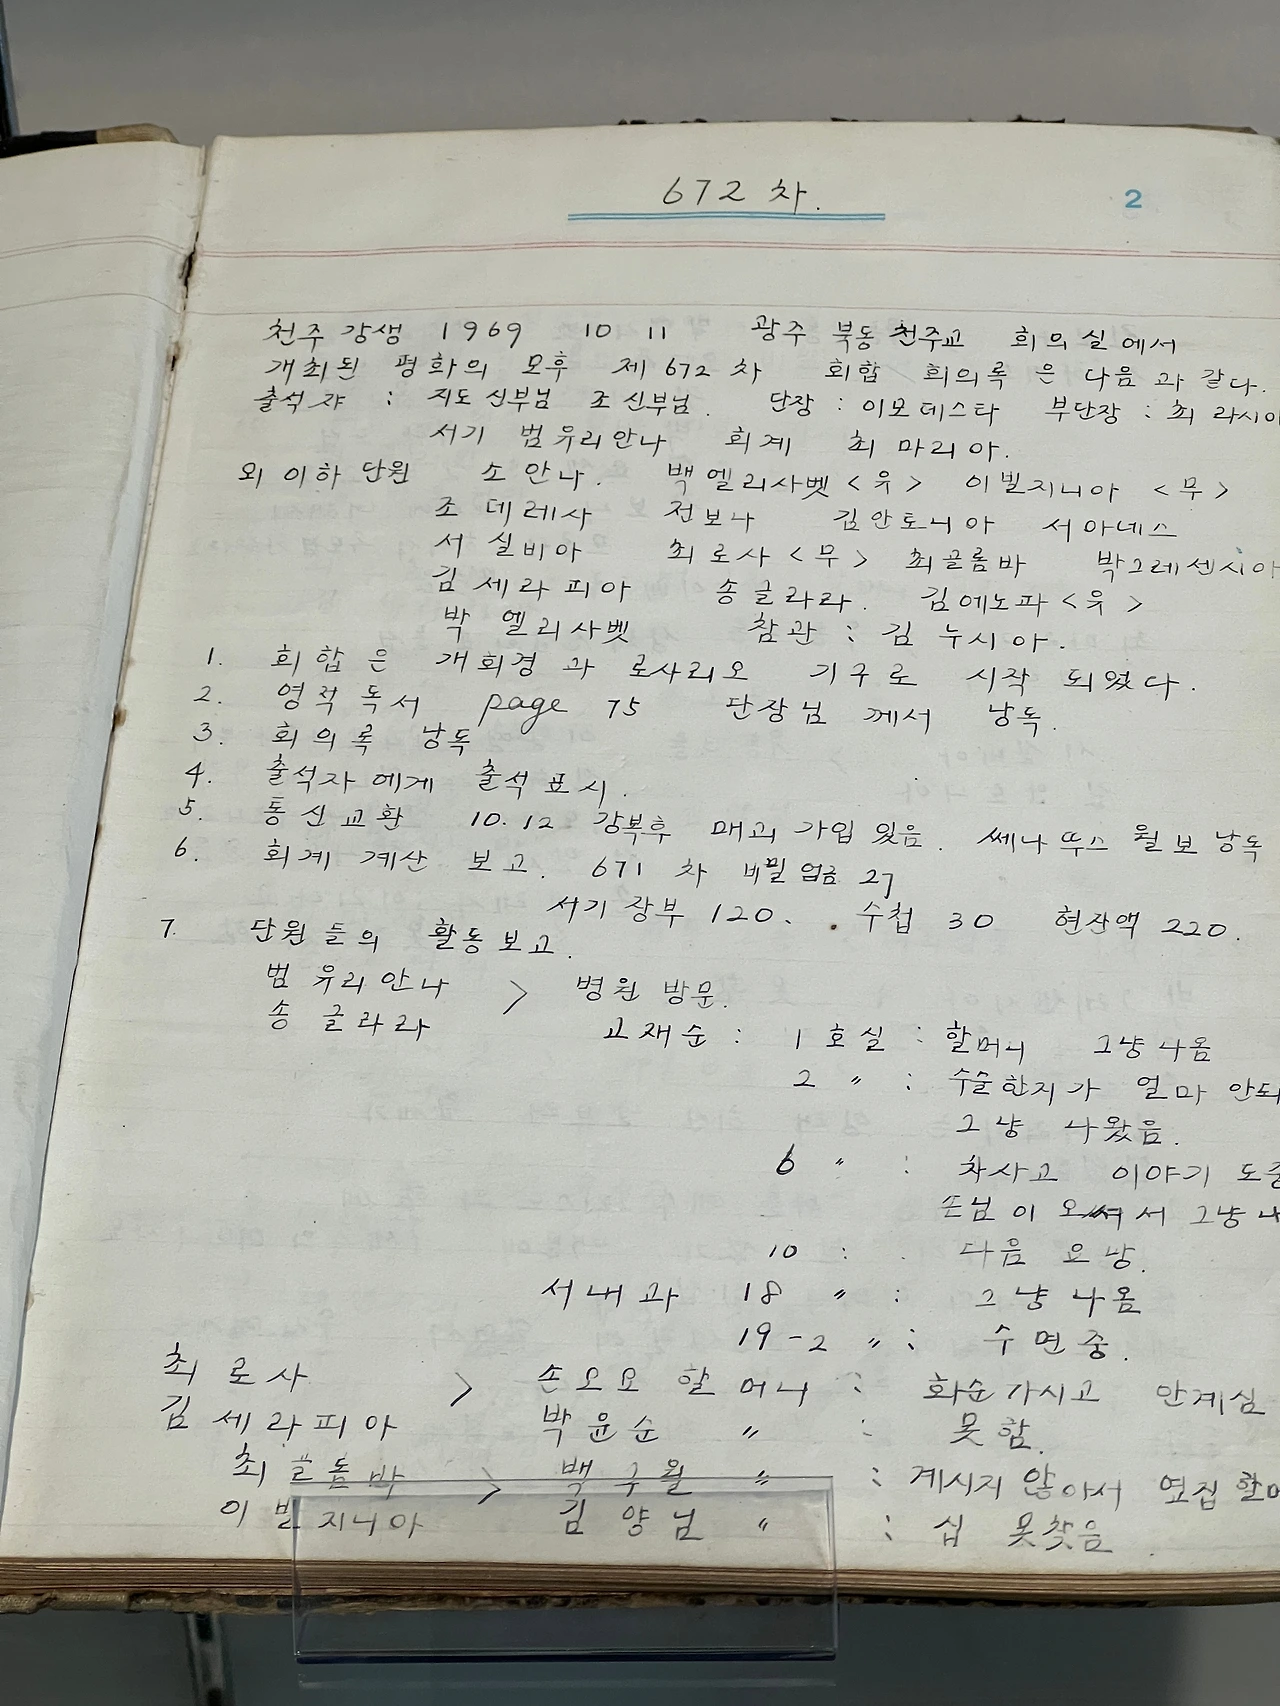 672 차.
2
천주 강생 1969 10 11 광주 북동 천주교 회의실에서
개최된 평화의 모후 제 672 차 회합 회의록은 다음과 같다.
출석쟈 : 지도신부님 조신부님. 단장 : 이모데스타 부단장 : 최 라시아
서기 범유리안나 회계 최 마리아.
외 이하 단원 소 안나. 백엘리사벳 <유> 이빌지니아 <무>
조 데레사 전보나 김안토니아 서아네스
서 실비아 최로사 <무> 최골롬바 박그레센시아
김세라피아 송글라라. 김에노파 <유>
박 엘리사벳 참관 : 김 누시아.
1. 회합은 개회경과 로사리오 기구로 시작 되었다.
2. 영적독서 page 75 단장님 께서 낭독.
3. 회의록 낭독
4. 출석자에게 출석표시.
5. 통신교환 10.12 강복후 매괴 가입 있음. 쎄나뚜스 월보 낭독
6. 회계 계산 보고. 671 차 비밀헌금 27
서기장부 120. 수첩 30 현잔액 220.
7. 단원들의 활동보고.
범 유리안나 > 병원 방문.
송 글라라 고재순 : 1 호실 : 할머니 그냥 나옴
2 〃 : 수술한지가 얼마 안되
그냥 나왔음.
6 〃 : 차사고 이야기 도중
손님이 오셔서 그냥 나
10 : 다음 요망.
서내과 18 〃 : 그냥 나옴
19-2 〃 : 수면중.
최로사 > 손오모 할머니 : 화순가시고 안계심
김세라피아 박윤순 〃 : 못함.
최골롬바 > 백구월 〃 : 계시지 않아서 옆집 할머
이빌지니아 김양님 〃 : 십 못찾음.